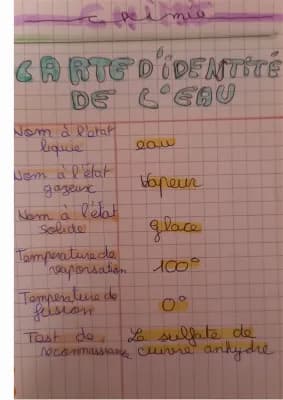 Chimie
CARTE D'IDENTITÉ
DE L'EAU
Nom à l'état
liquie
eau
Nom à l'état
gazeux
Vapeur
Nom à l'état
solide
glace
Température de
vaporisation
100°
Température de
fusion
0°
Test de
reconnaissance
Le sulfate de
cuivre anhydre